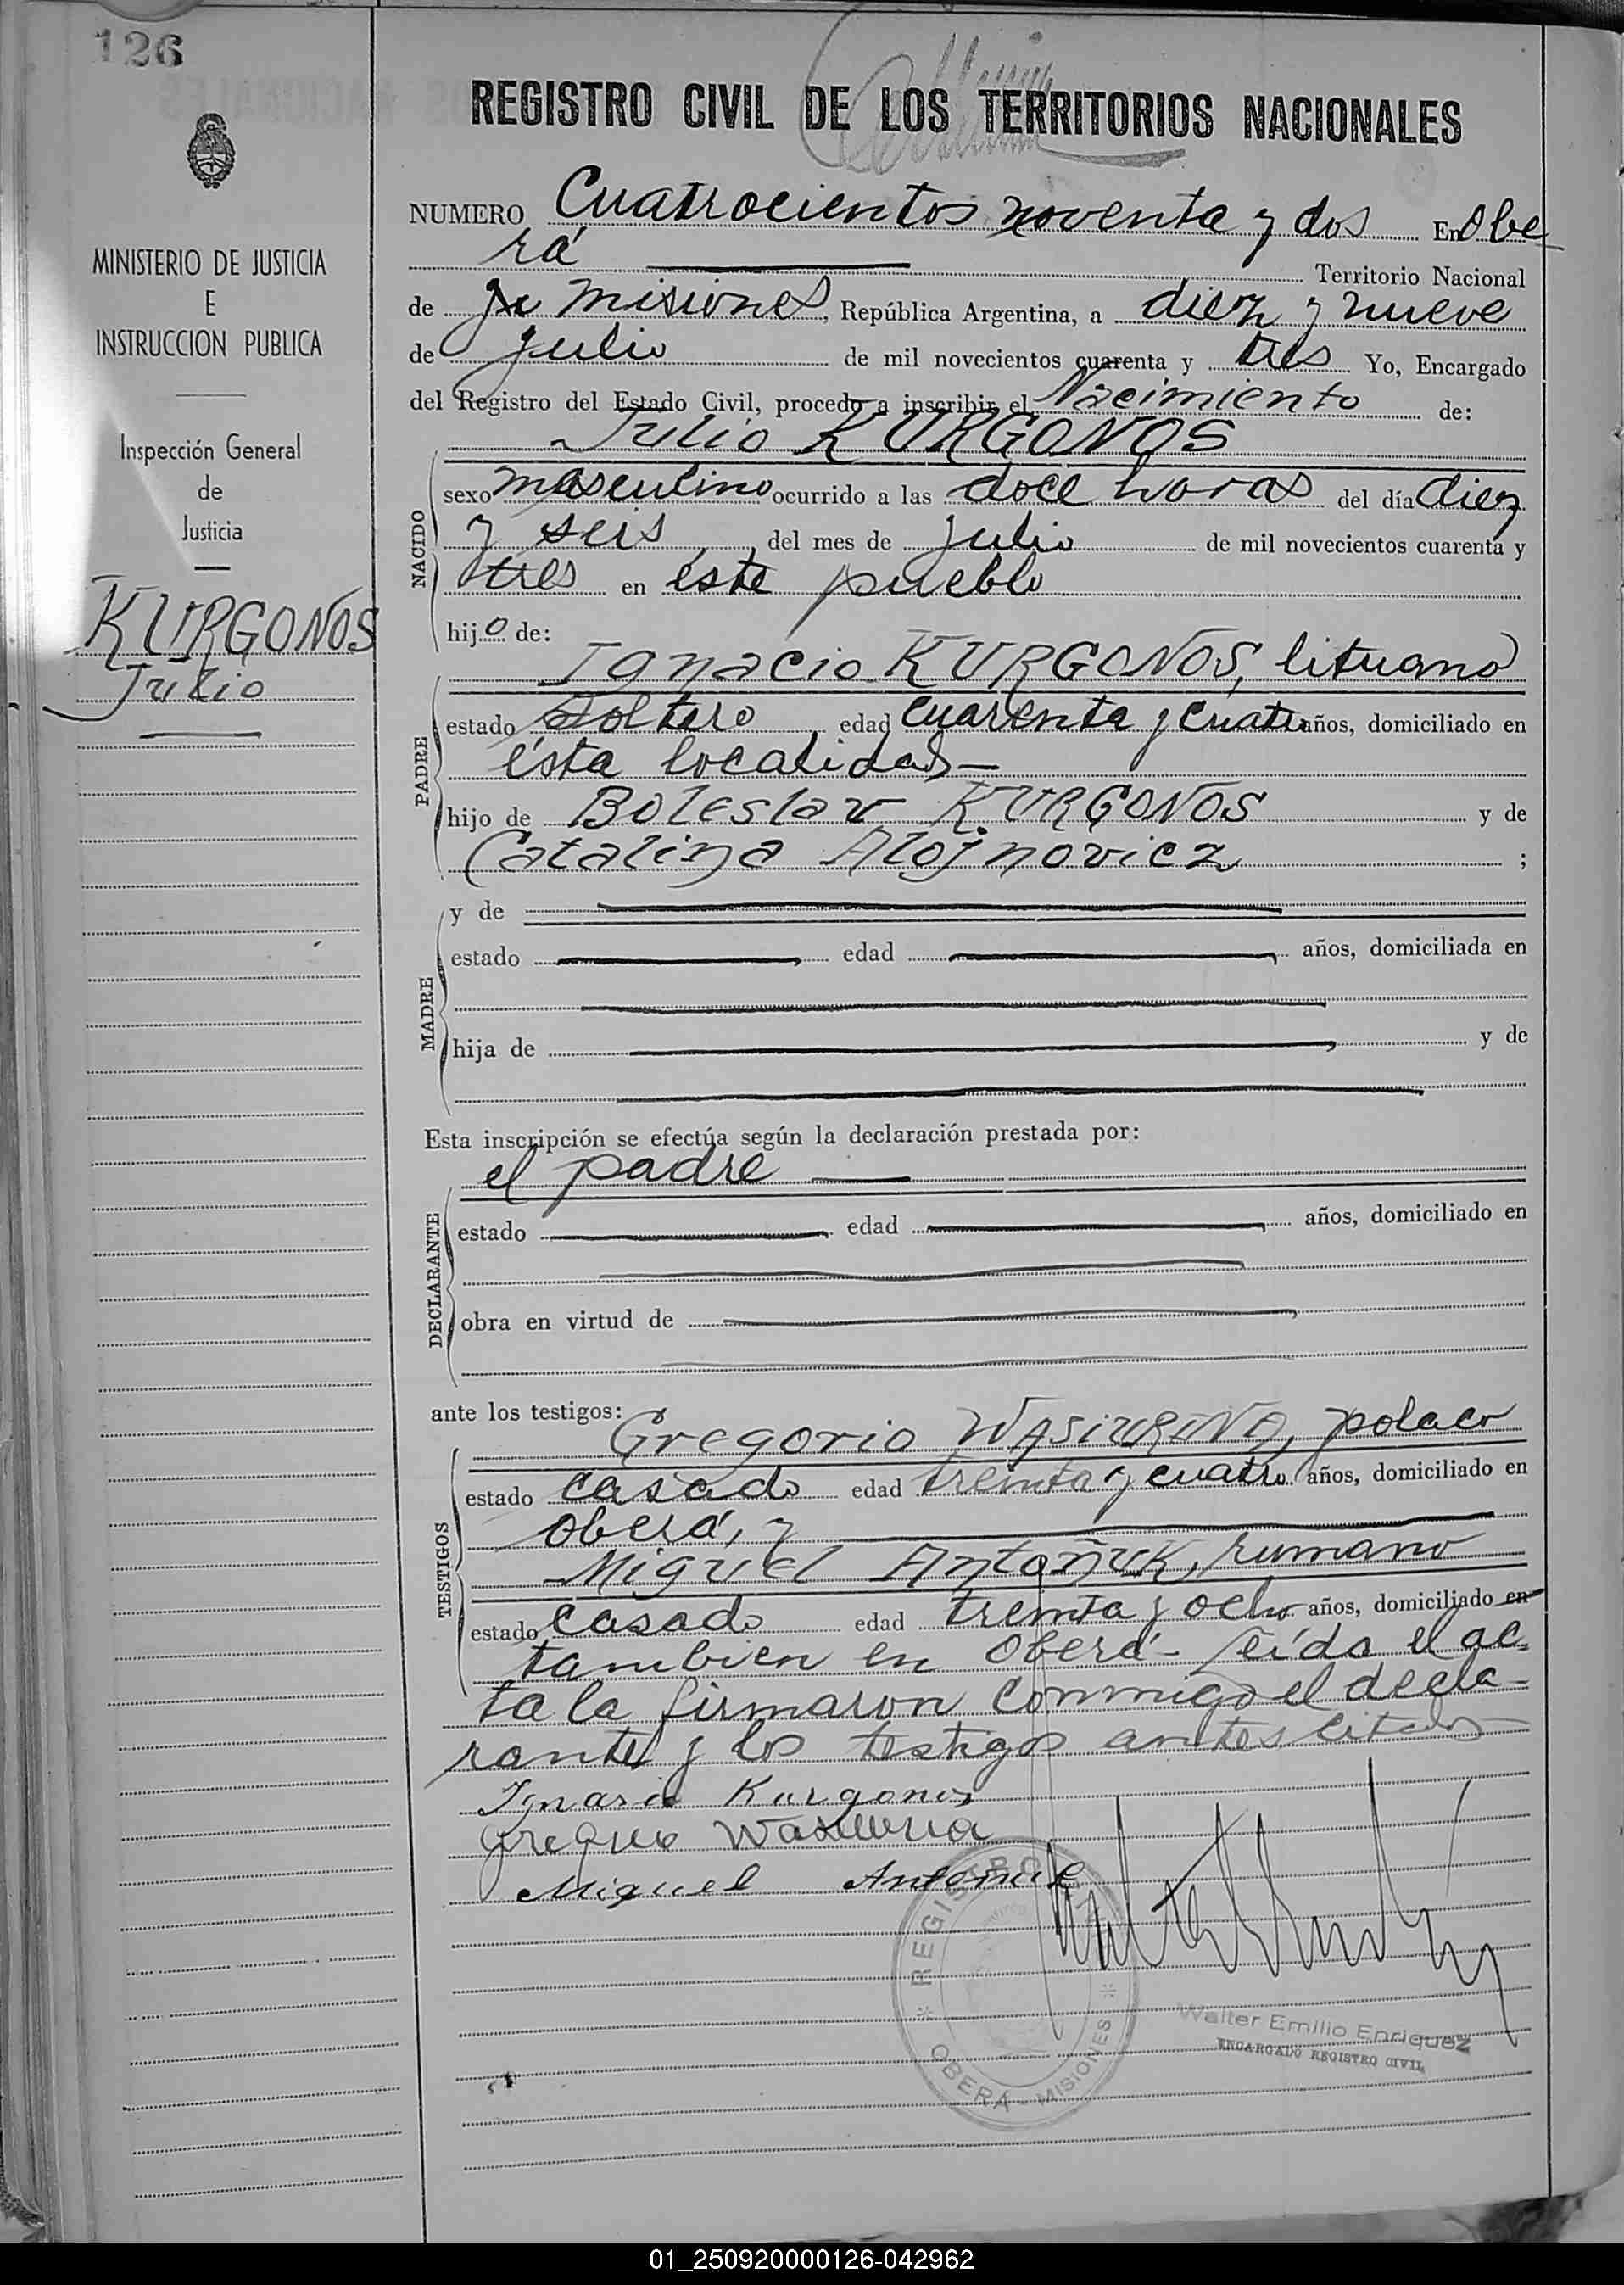 126
MINISTERIO DE JUSTICIA
E
INSTRUCCION PUBLICA
Inspección General
de
Justicia
KURGONOS
Julio
REGISTRO CIVIL DE LOS TERRITORIOS NACIONALES
NUMERO Cuatrocientos noventa y dos En Obe
rá Territorio Nacional
de Misiones, República Argentina, a diez y nueve
de julio de mil novecientos cuarenta y tres Yo, Encargado
del Registro del Estado Civil, procedo a inscribir el Nacimiento de:
Julio KURGONOS
NACIDO
sexo masculino ocurrido a las doce horas del día diez
y seis del mes de julio de mil novecientos cuarenta y
tres en este pueblo
hijo de:
Ignacio KURGONOS, lituano
PADRE
estado soltero edad cuarenta y cuatro años, domiciliado en
ésta localidad-
hijo de Boleslav KURGONOS y de
Catalina Alojnovicz ;
MADRE
y de
estado edad años, domiciliada en
hija de y de
Esta inscripción se efectúa según la declaración prestada por:
el padre
DECLARANTE
estado edad años, domiciliado en
obra en virtud de
ante los testigos:
Gregorio polaco
TESTIGOS
estado casado edad treinta y cuatro años, domiciliado en
oberá, y
Miguel Antoñuk, rumano
estado casado edad treinta y ocho años, domiciliado en
tambien en Oberá- Leída el ac-
ta la firmaron conmigo el decla-
rante y los testigos antes citados
Ignacio Kurgonos
Miguel Antoniuk
REGISTRO CIVIL
OBERÁ - MISIONES
Walter Emilio Enriquez
ENCARGADO REGISTRO CIVIL
01_250920000126-042962